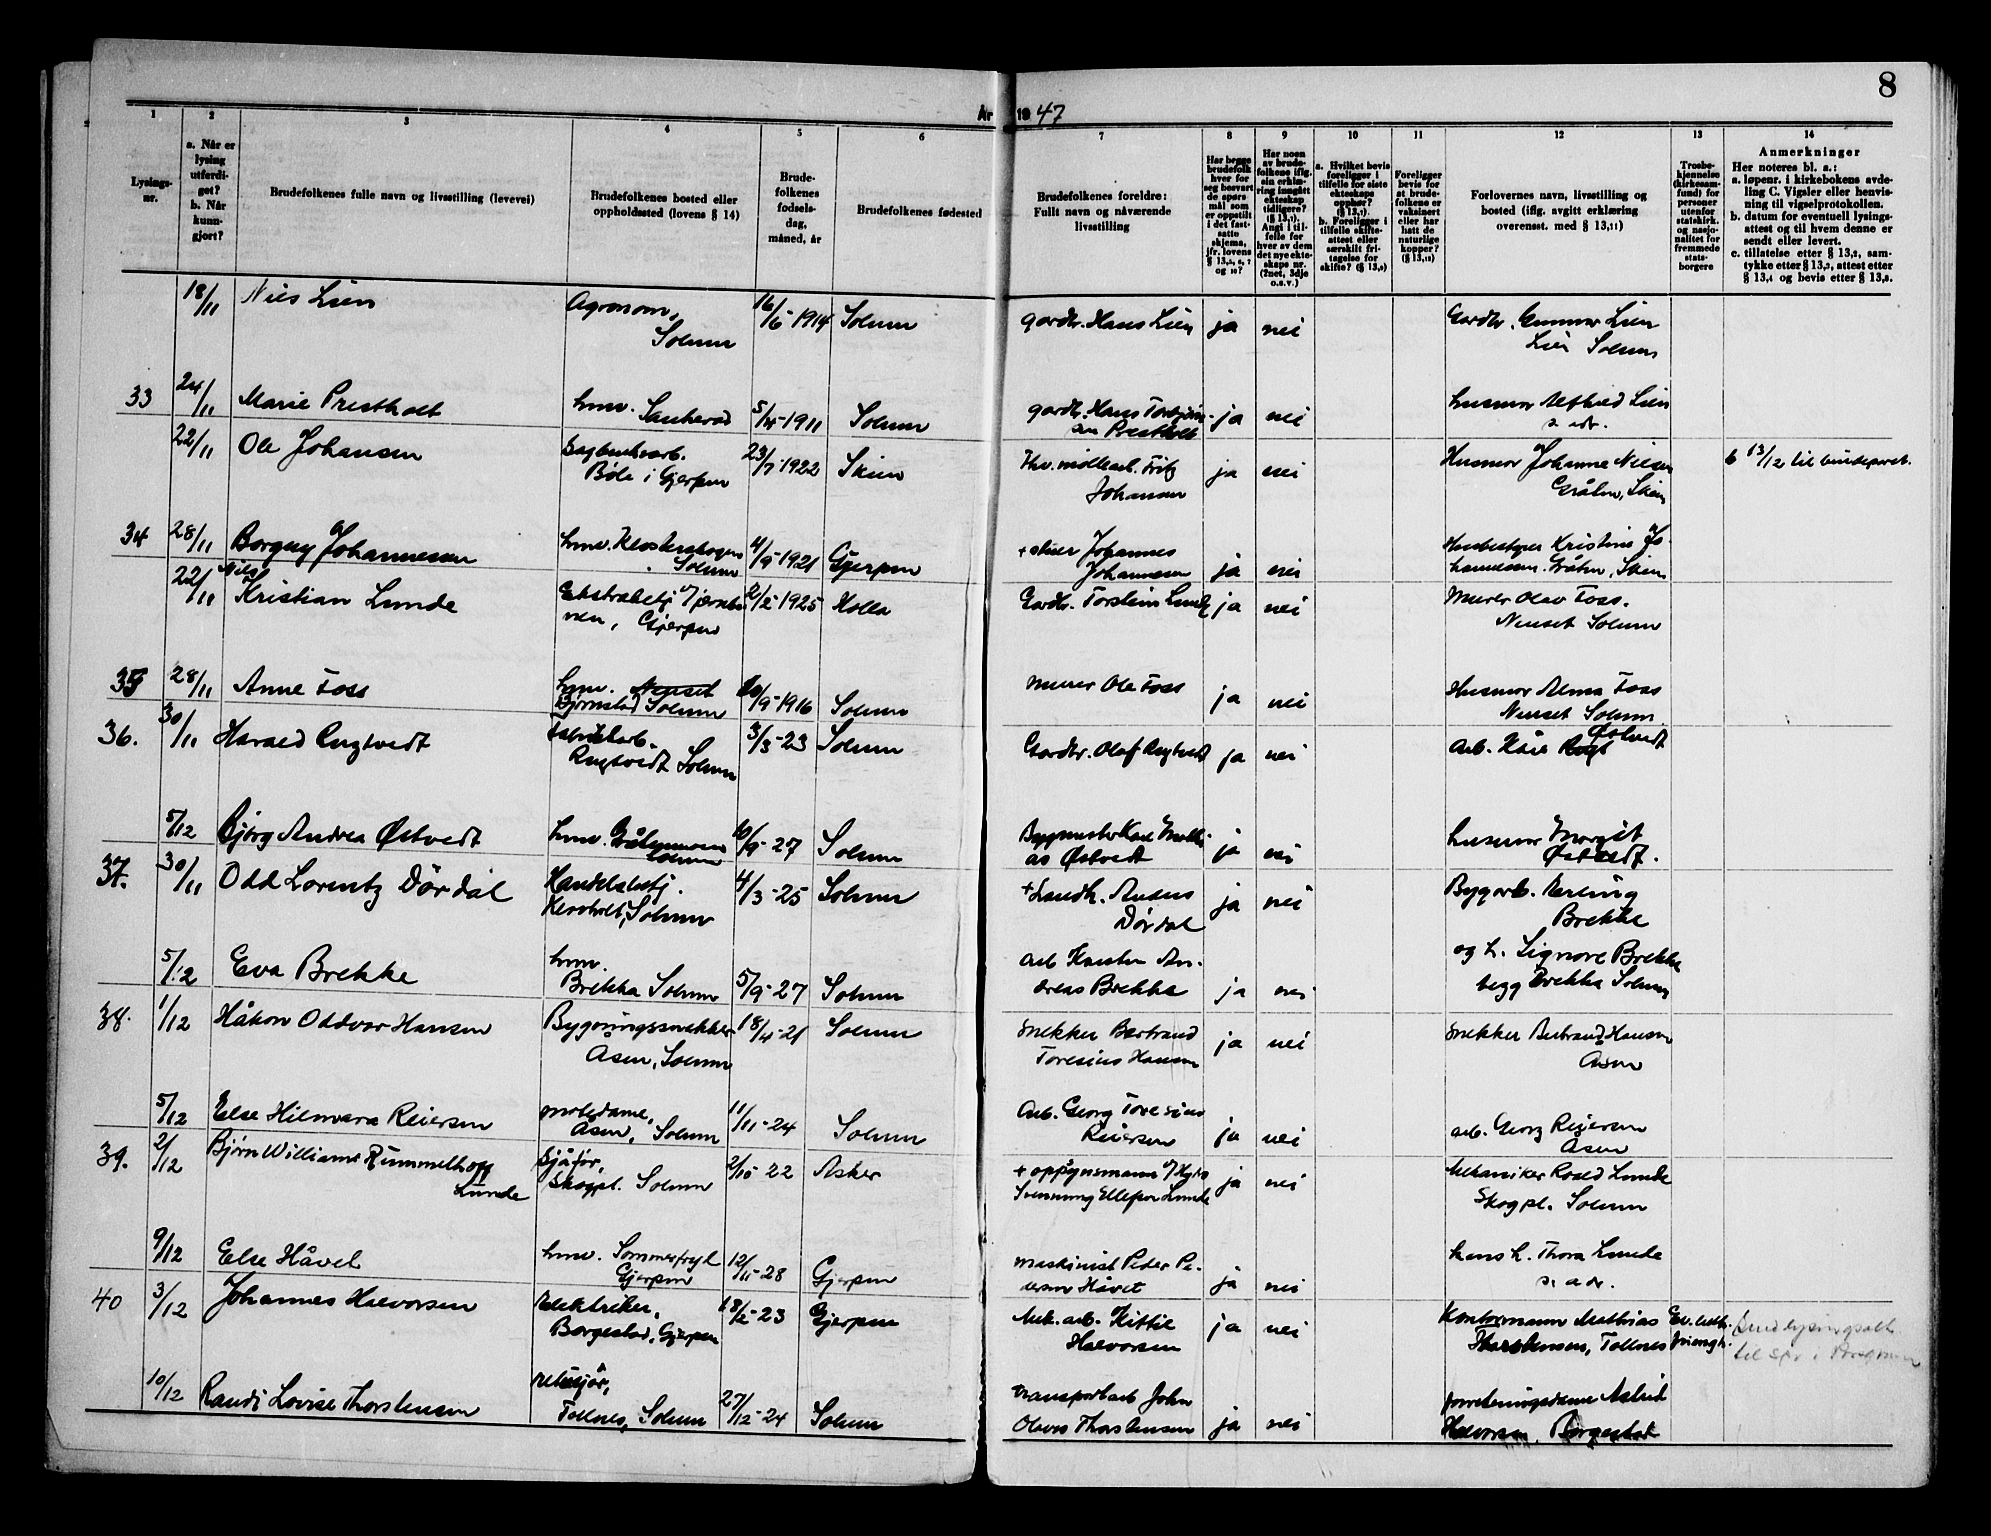 8
År 1947
1
2
3
4
5
6
7
8
9
10
11
12
13
14
Lysings-
nr.
a. Når er
lysing
utferdi-
get?
b. Når
kunn-
gjort?
Brudefolkenes fulle navn og livsstilling (levevei)
Brudefolkenes bosted eller
oppholdssted (lovens § 14)
Brude-
folkenes
fødsels-
dag,
måned, år
Brudefolkenes fødested
Brudefolkenes foreldre:
Fullt navn og nåværende
livsstilling
Har begge
brudefolk
hver for
seg besvart
de spørs-
mål som
er oppstilt
i det fast-
satte
skjema,
jfr. lovens
Har noen
av brude-
folkene iflg.
sin erklæ-
ring inngått
ekteskap
tidligere?
(§ 13,1).
Angi i til-
felle for
hver av dem
det nye ekte-
skaps nr.
(2net, 3dje
o.s.v.)
a. Hvilket bevis
foreligger i
tilfelle for siste
ekteskaps
opphør?
(§ 13,1)
b. Foreligger i
tilfelle skifte-
attest eller
særskilt fri-
tagelse for
skifte? (§ 13,8)
Foreligger
bevis for
at brude-
folkene er
vaksinert
eller har
hatt de
naturlige
kopper?
Forlovernes navn, livsstilling og
bosted (iflg. avgitt erklæring
overensst. med § 13,11)
Trosbe-
kjennelse
(kirkesam-
fund) for
personer
utenfor
statskirk.
og nasjo-
nalitet for
fremmede
stats-
borgere
Anmerkninger
Her noteres bl. a.:
a. løpenr. i kirkebokens avde-
ling C. Vigsler eller henvis-
ning til vigselprotokollen.
b. datum for eventuell lysings-
attest og til hvem denne er
sendt eller levert.
c. tillatelse etter § 13,2, sam-
tykke etter § 13,3, attest etter
§ 13,4 og bevis etter § 13,5.
18/11 Nils Lien Agronom, 16/6-1914 Solum gardbr. Hans Lien ja nei Gardbr. Gunnar Lien
Solum Lien Solum
33 24/11 Marie Prestholt hmv. Sauherad 5/4-1911 Solum gardbr. Hans ja nei husmor Lien
Prestholt s. adr.
22/11 Ole Johansen 23/7-1922 Skien Fritz ja nei Husmor Johanne Nilsen b 13/12 til
Bøle i Gjerpen Johansen Skien
34 28/11 Borgny Johannessen hmv. Klosterskogen 4/9-1921 Gjerpen + Johannes ja nei Kristine Jo-
Solum Johannessen Skien
22/11 Nils Kristian Lunde 1925 Holla Gardbr. Torstein Lunde ja nei Murer Olav Foss.
Gjerpen Nenset Solum
35 28/11 Anne Foss hmv. Nenset 1916 Solum Murer Ole Foss ja nei Husmor Alma Foss
Bjørnstad Solum Nenset Solum
36. 30/11 Harald Rugtvedt fabrikkarb. 3/3-23 Solum Gardbr. Olaf Rugtvedt ja nei arb. Kåre Østvedt
Rugtvedt Solum
5/12 Bjørg Andrea Østvedt hmv. Solum 27 Solum Byggmester Karl ja nei husmor Margit
as Østvedt Østvedt.
37. 30/11 Odd Lorentz Dørdal Handelsbetj. 4/3-25 Solum + Anders ja nei Bygarb. Erling
Solum Dørdal Brekke
5/12 Eva Brekke hmv. 5/9-27 Solum arb Karsten An- og h. Signore Brekke
Brekka Solum dreas Brekke ja nei begg Brekka Solum
38. 1/12 Håkon Oddvar Hansen Bygningssnekker 18/4-21 Solum Snekker Bertrand ja nei Snekker Bertrand Hansen
Åsen, Solum Toresius Hansen Åsen
5/12 Else Hilmara Reiersen motedame, 11/11-24 Solum Arb. Georg Toresius ja nei arb. Georg Reiersen
Åsen, Solum Reiersen Åsen
39. 2/12 Bjørn William Rummelhoff sjåfør, 22 Asker + oppsynsmann ja nei Mekaniker Roald Lunde
Lunde Skogpl. Solum Svenning Lunde Skogpl. Solum
9/12 Else Håvet hmv. Sommerfryd 12/11-28 Gjerpen maskinist Peder Pe- ja nei hans h. Thora Lunde
Gjerpen dersen Håvet s. adr.
40 3/12 Johannes Halvorsen Elektriker, 23 Gjerpen Mek. arb. Kittil ja nei Kontormann Mathias Ev. luth.
Borgestad, Gjerpen Halvorsen Thorstensen, Tollnes
10/12 Randi Lovise Thorstensen 27/12-24 Solum transportarb John ja nei forretningsdame Astrid
Tollnes, Solum Olaves Thorstensen Halvorsen, Borgestad